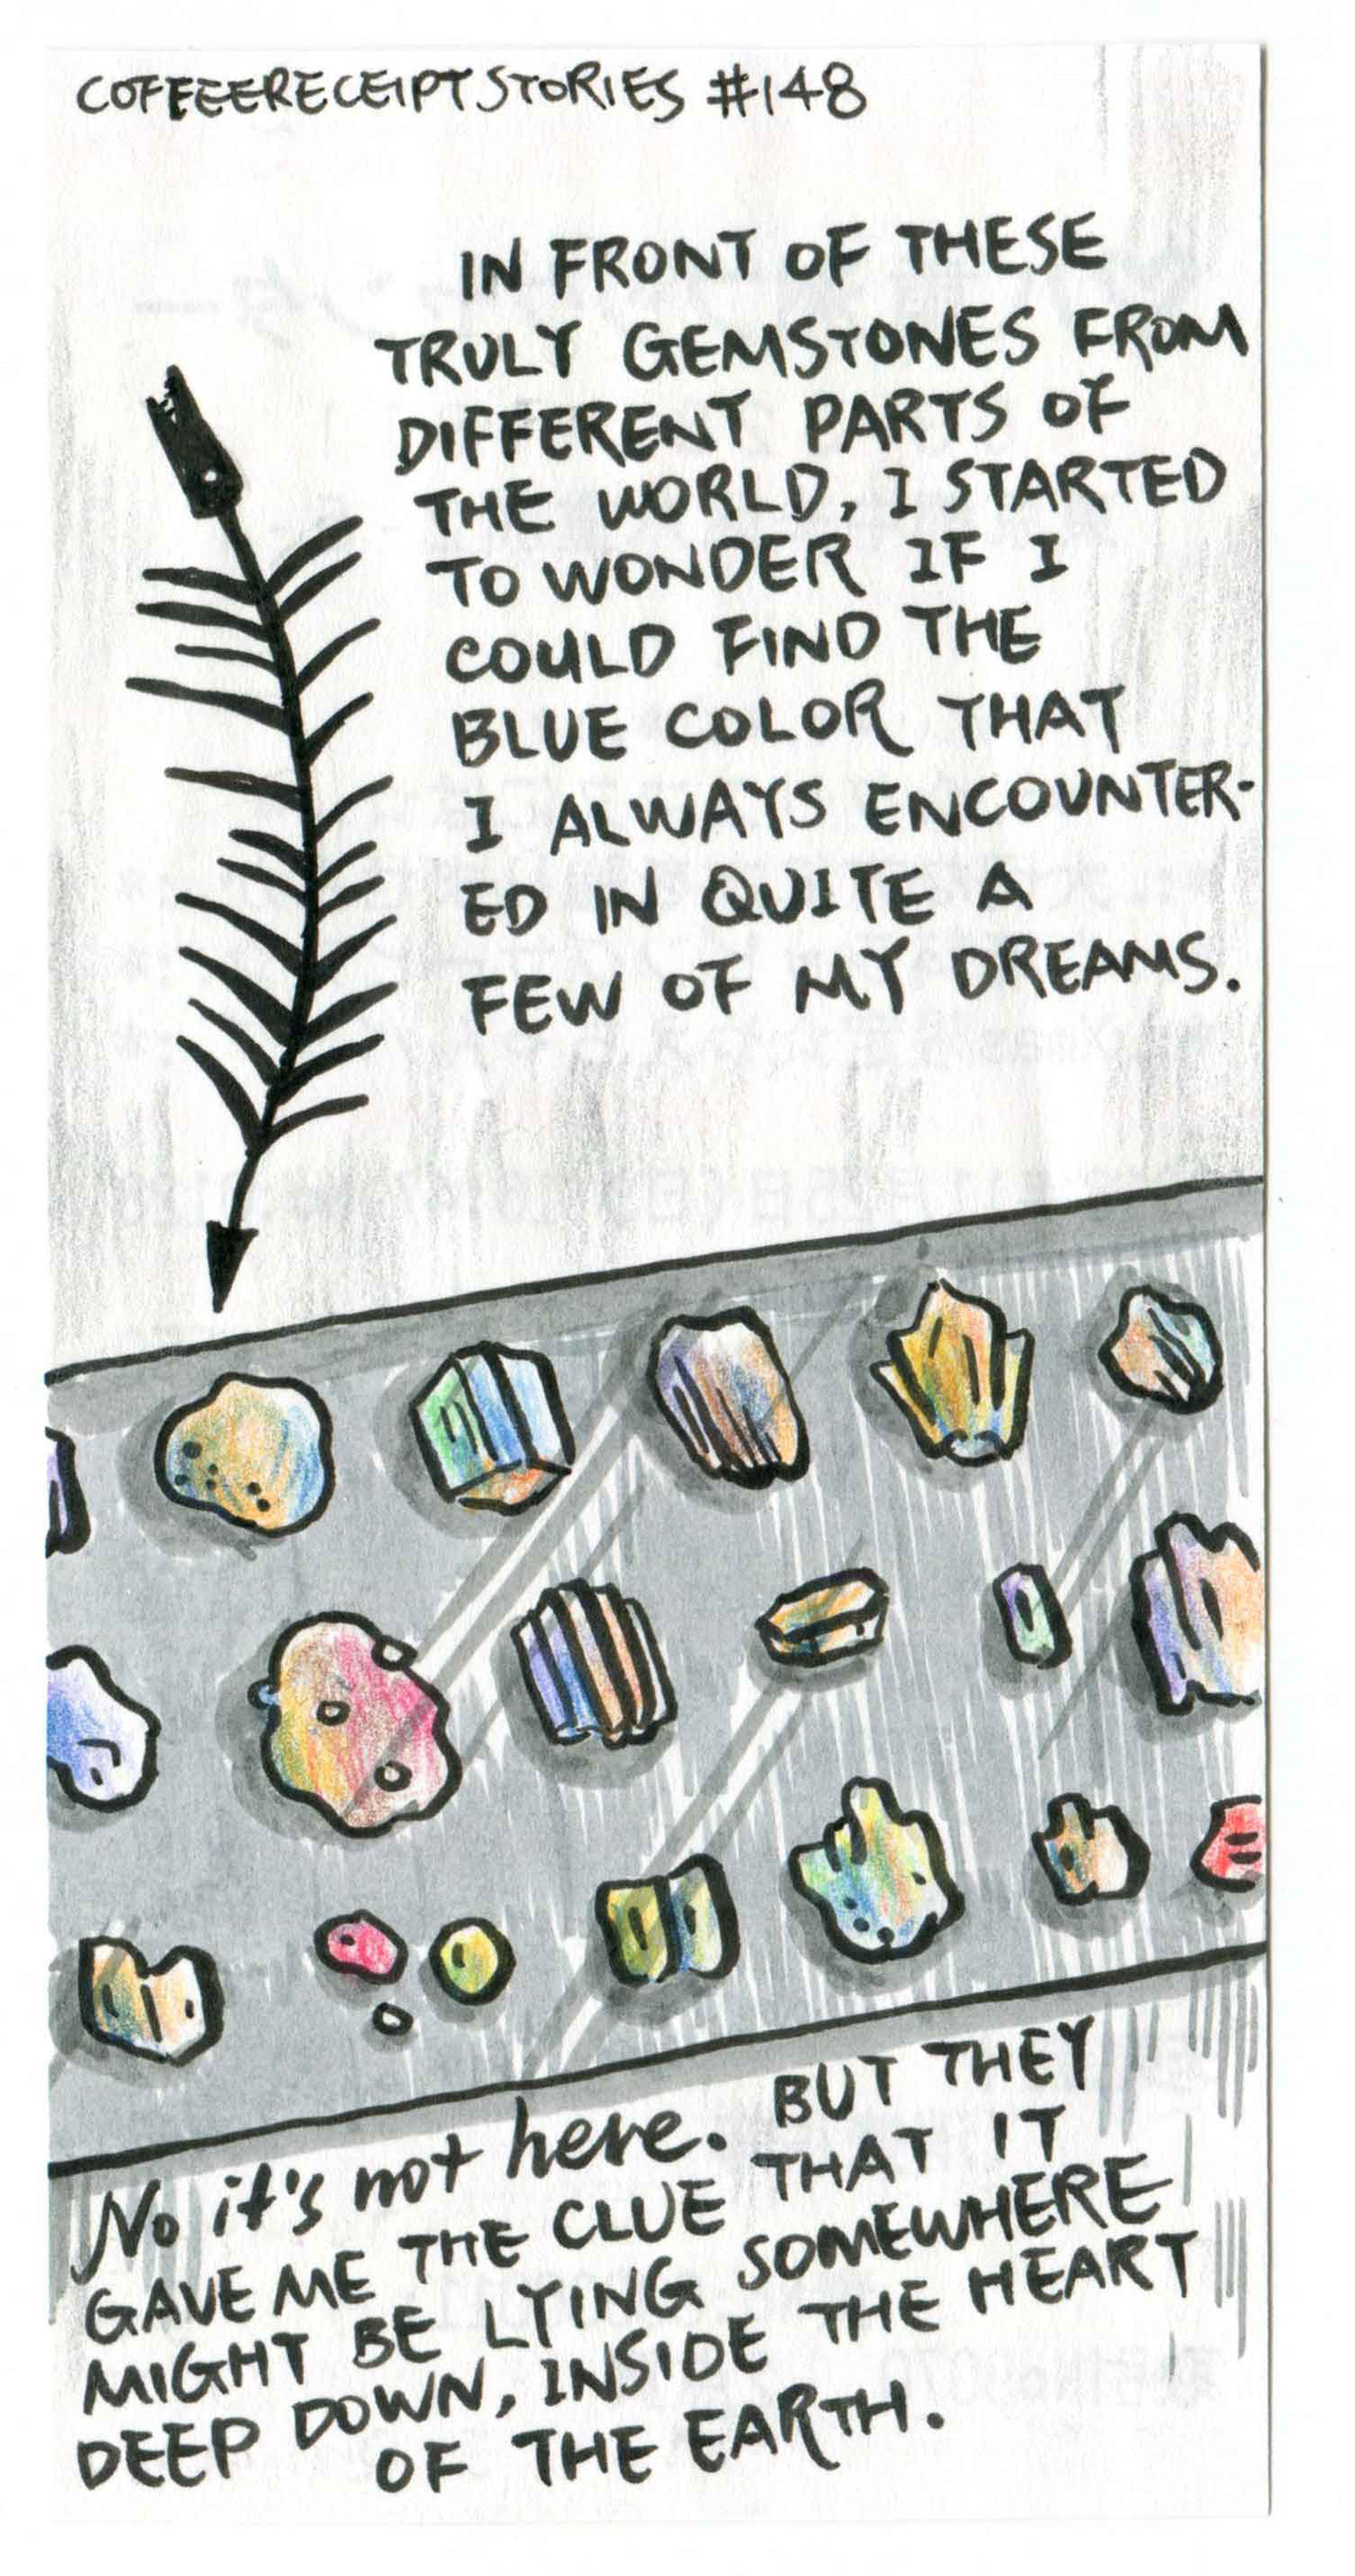 COFFEEERECEIPTSTORIES #148
IN FRONT OF THESE
TRULY GEMSTONES FROM
DIFFERENT PARTS OF
THE WORLD, I STARTED
TO WONDER IF I
COULD FIND THE
BLUE COLOR THAT
I ALWAYS ENCOUNTER-
ED IN QUITE A
FEW OF MY DREAMS.
No it's not here. BUT THEY
GAVE ME THE CLUE THAT IT
MIGHT BE LYING SOMEWHERE
DEEP DOWN, INSIDE THE HEART
OF THE EARTH.